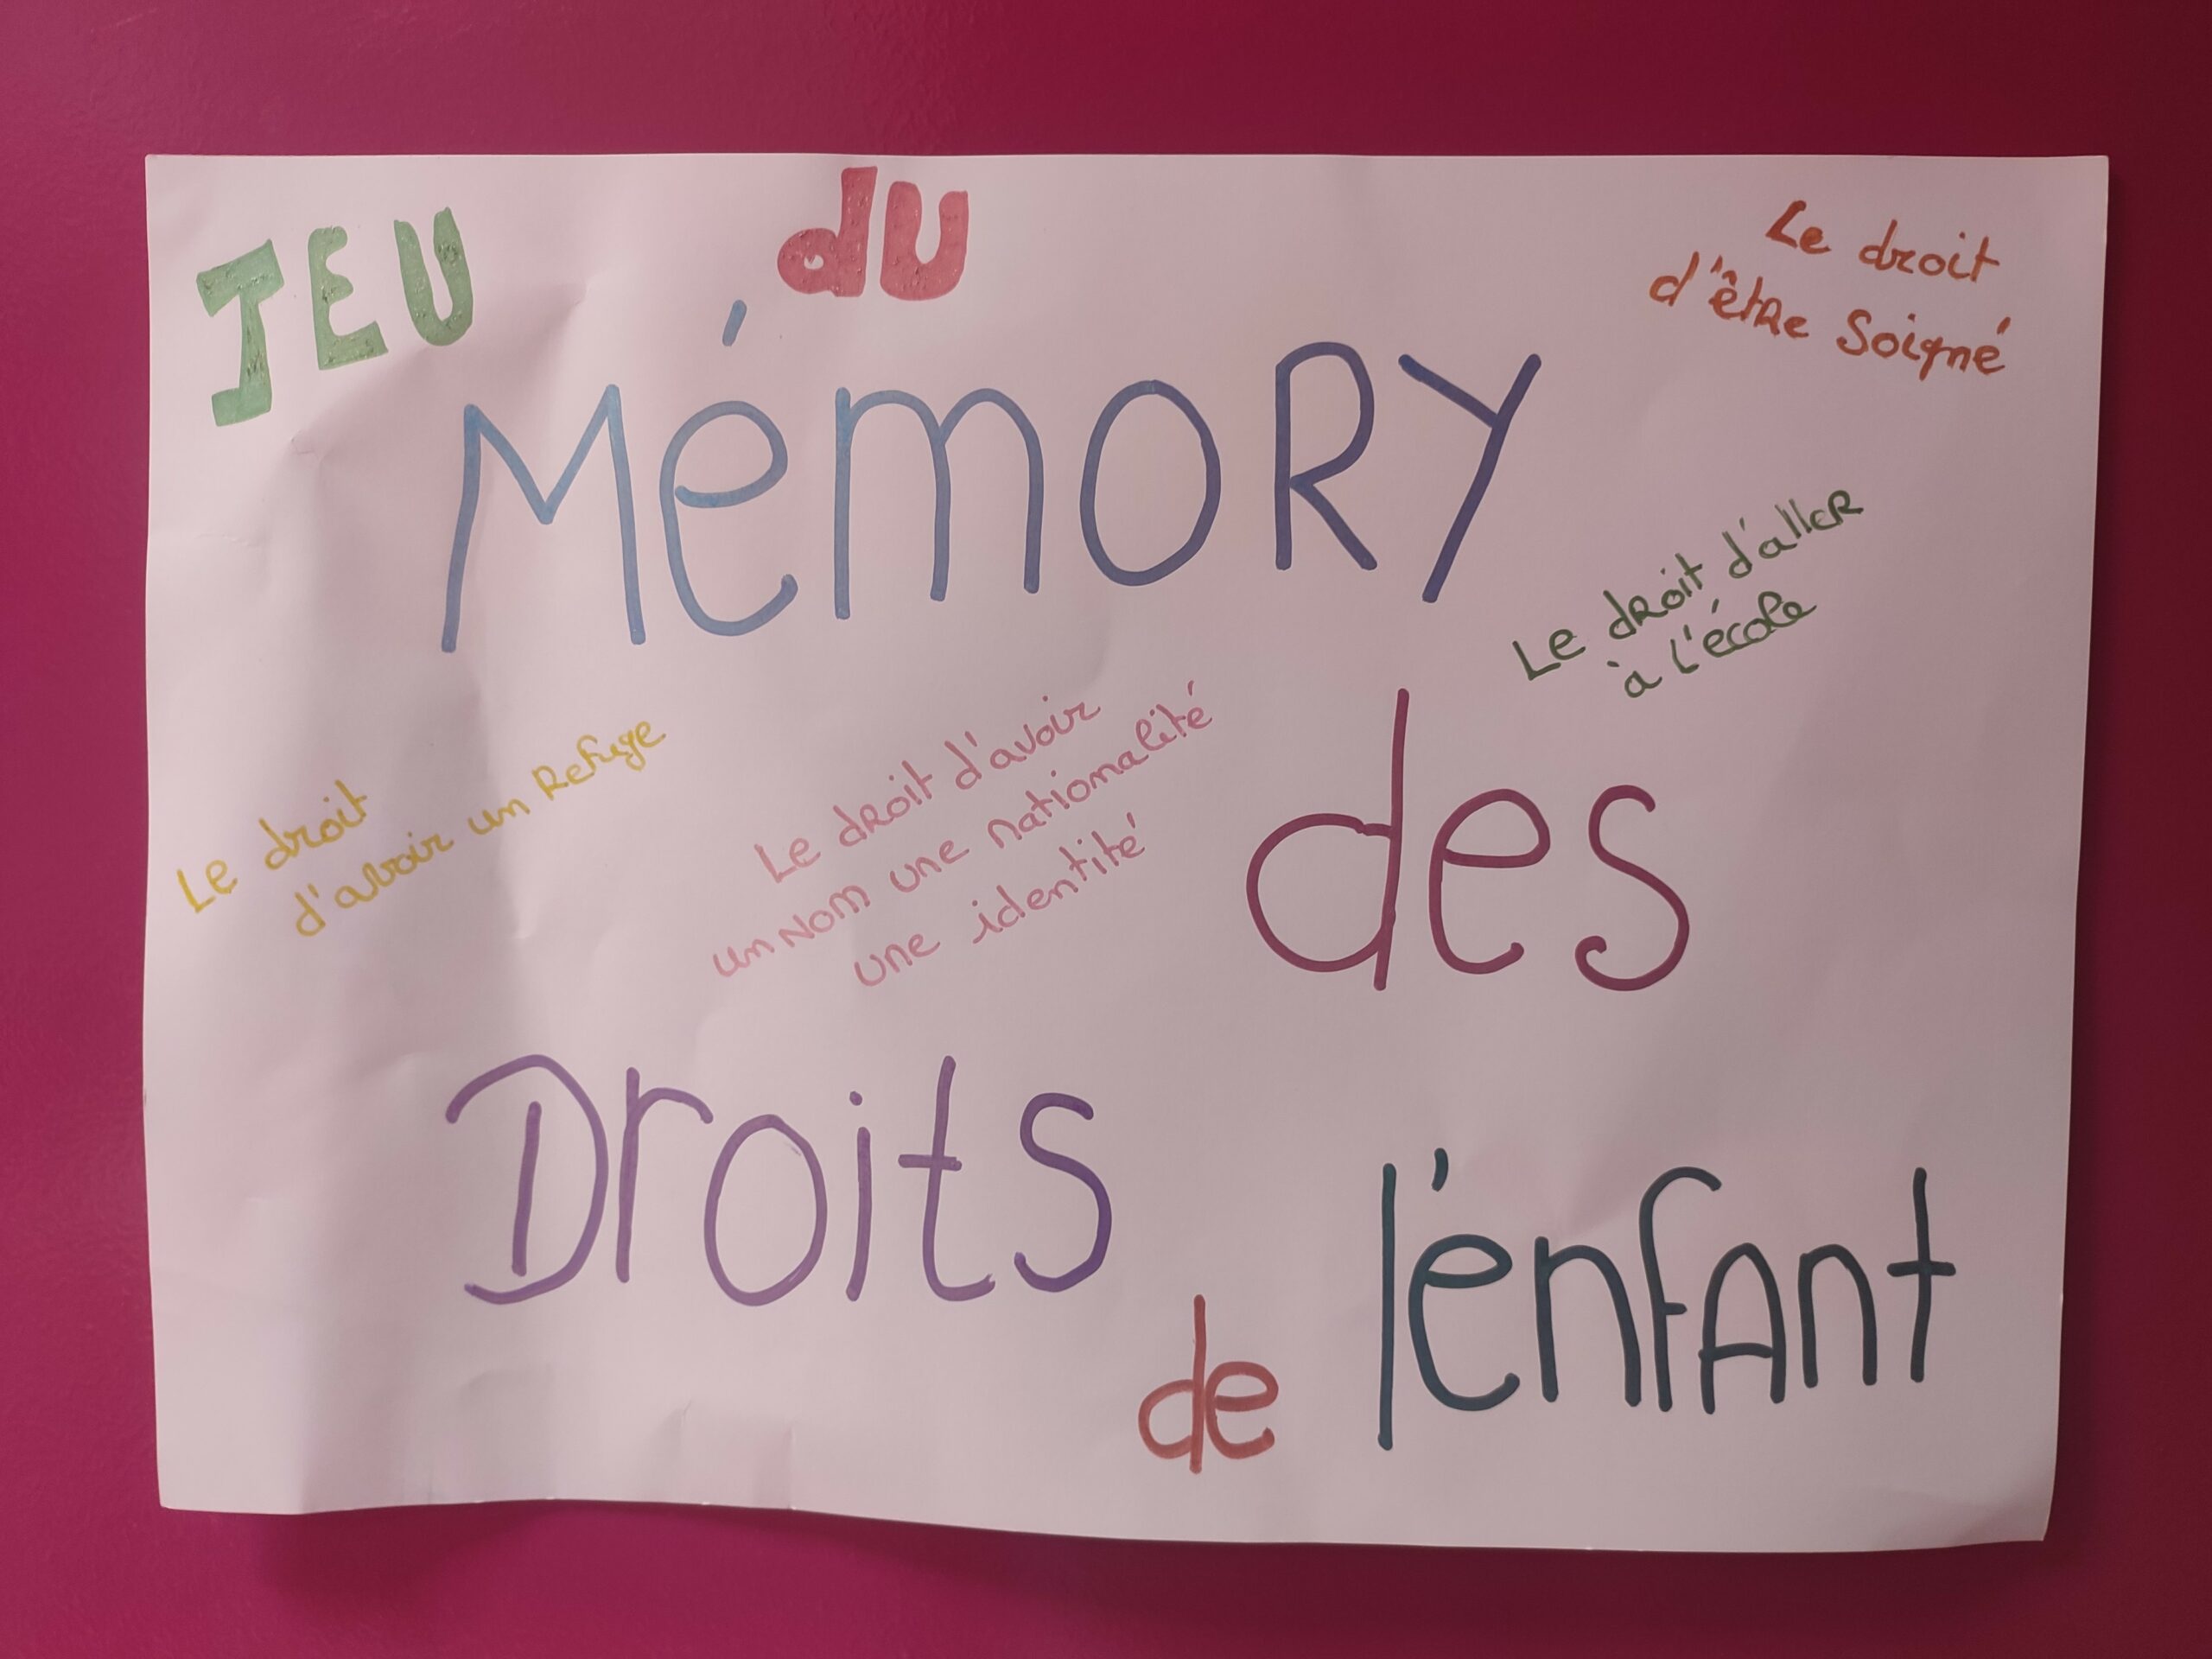 JEU dU
MéMORY
Le droit
d'être Soigné
Le dRoit d'alleR
à l'école
Le droit
d'avoir un Refuge
Le dRoit d'avoir
un NOM une nationalité
une identité
des
Droits
de l'enfAnt